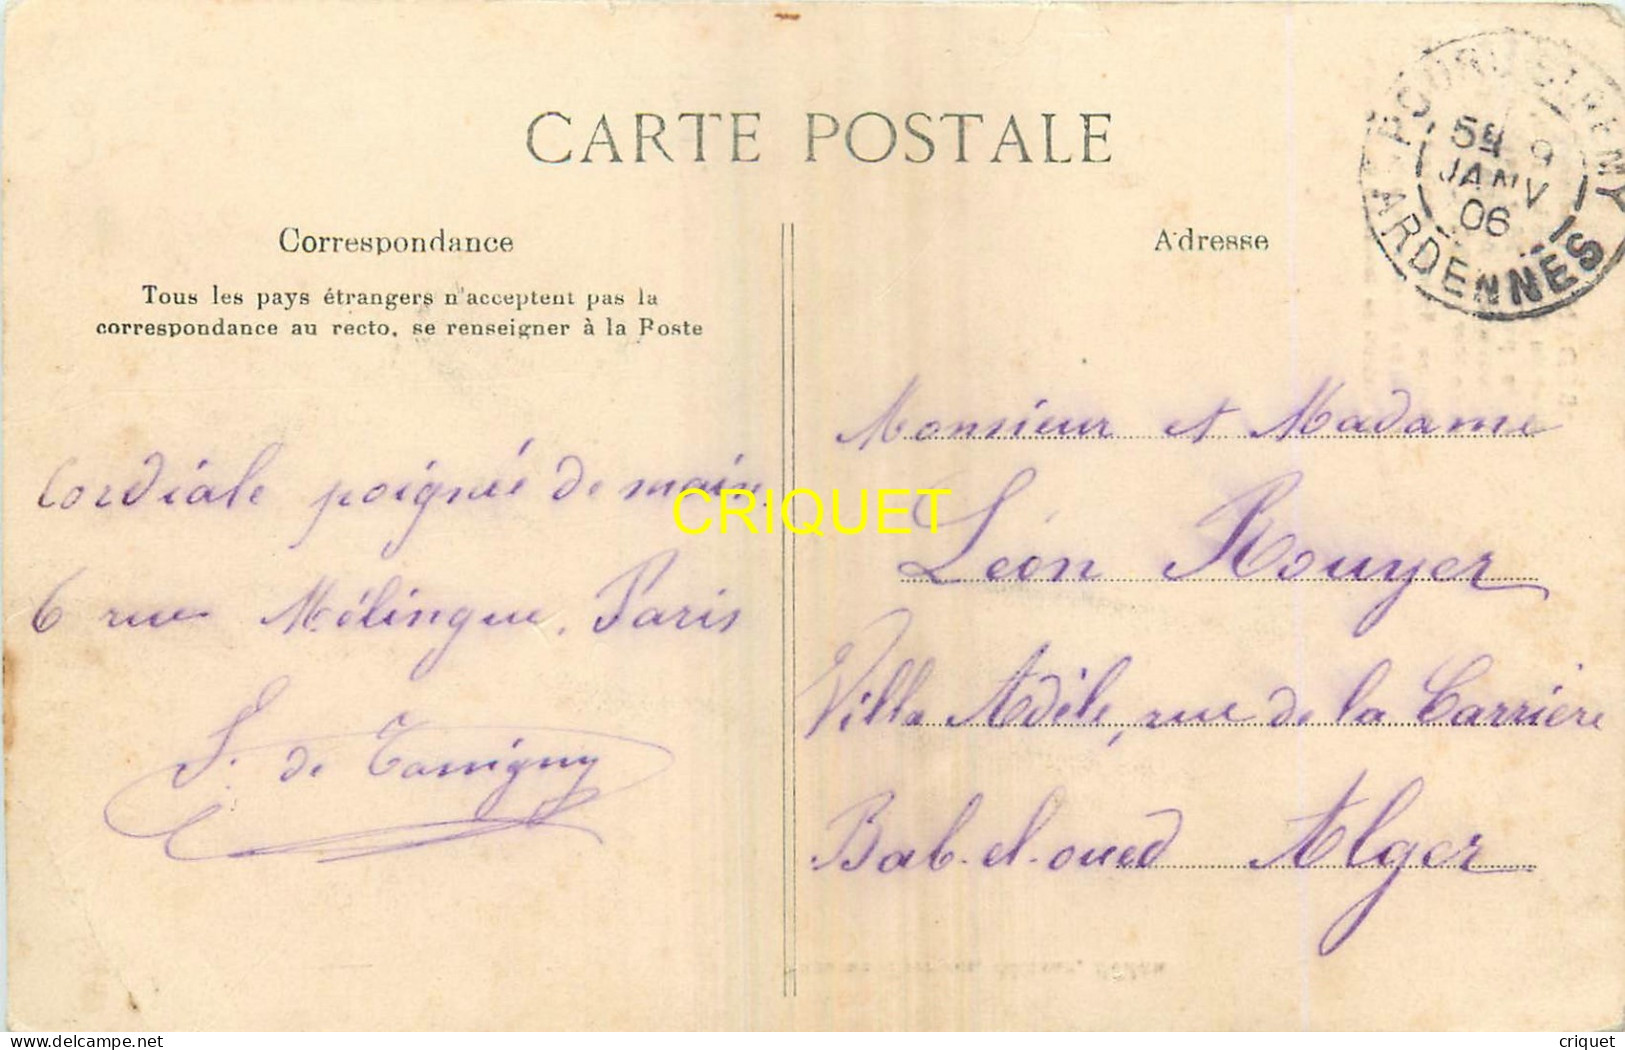 CARTE POSTALE
POURU-ST-REMY
5E 9
JANV
06
ARDENNES
Correspondance
Adresse
Tous les pays étrangers n'acceptent pas la
correspondance au recto, se renseigner à la Poste
Cordiale poignée de main.
6 rue Mélingue. Paris
de
Monsieur et Madame
Léon Rouyer
Villa Adèle, rue de la Carrière
Bab-el-oued Alger
CRIQUET
delcampe.net
criquet